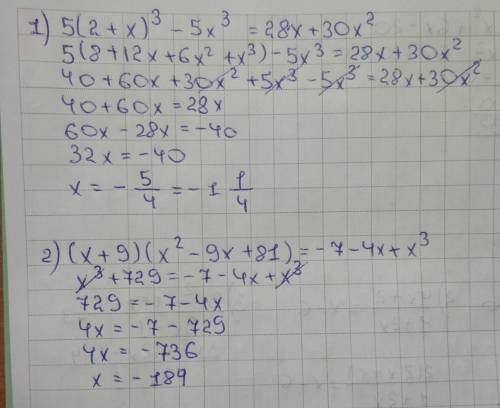 1) 5(2+x)³ - 5x³ = 28x + 30x²
5(8+12x+6x²+x³) - 5x³ = 28x + 30x²
40 + 60x + 30x² + 5x³ - 5x³ = 28x + 30x²
40 + 60x = 28x
60x - 28x = -40
32x = -40
x = - 5/4 = -1 1/4
2) (x+9)(x² - 9x + 81) = -7 - 4x + x³
x³ + 729 = -7 - 4x + x³
729 = -7 - 4x
4x = -7 - 729
4x = -736
x = -184